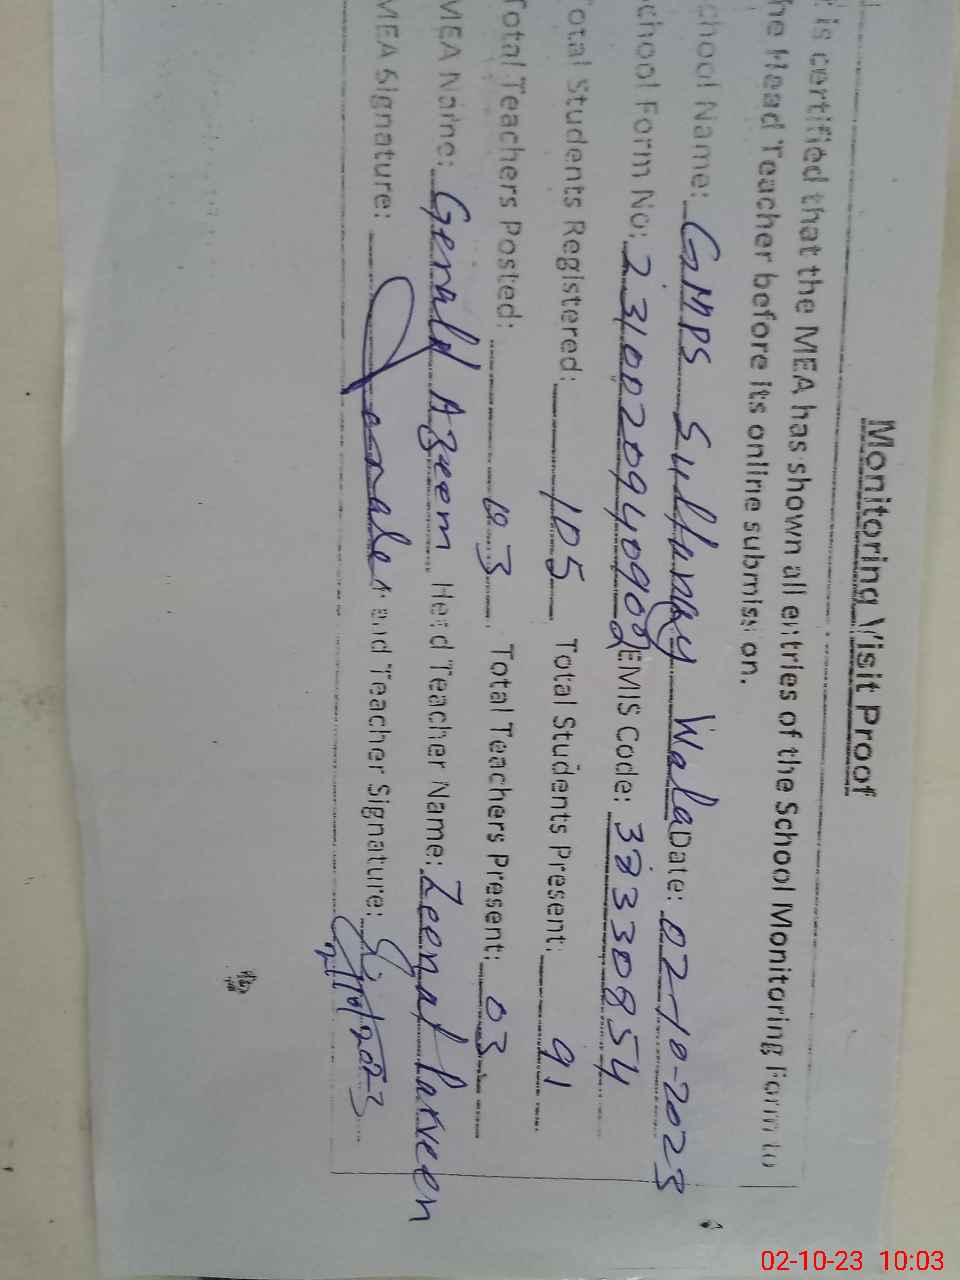 Monitoring Visit Proof
t is certified that the MEA has shown all entries of the School Monitoring Form to
he Head Teacher before its online submission.
chool Name: GMPS Sultanay Wala Date: 02-10-2023
chool Form No: EMIS Code: 38330854
otal Students Registered: 105 Total Students Present: 91
Total Teachers Posted: 03 Total Teachers Present: 03
MEA Name: Gerald Azeem Head Teacher Name: Zeenat Parveen
MEA Signature: Head Teacher Signature:
02-10-23 10:03